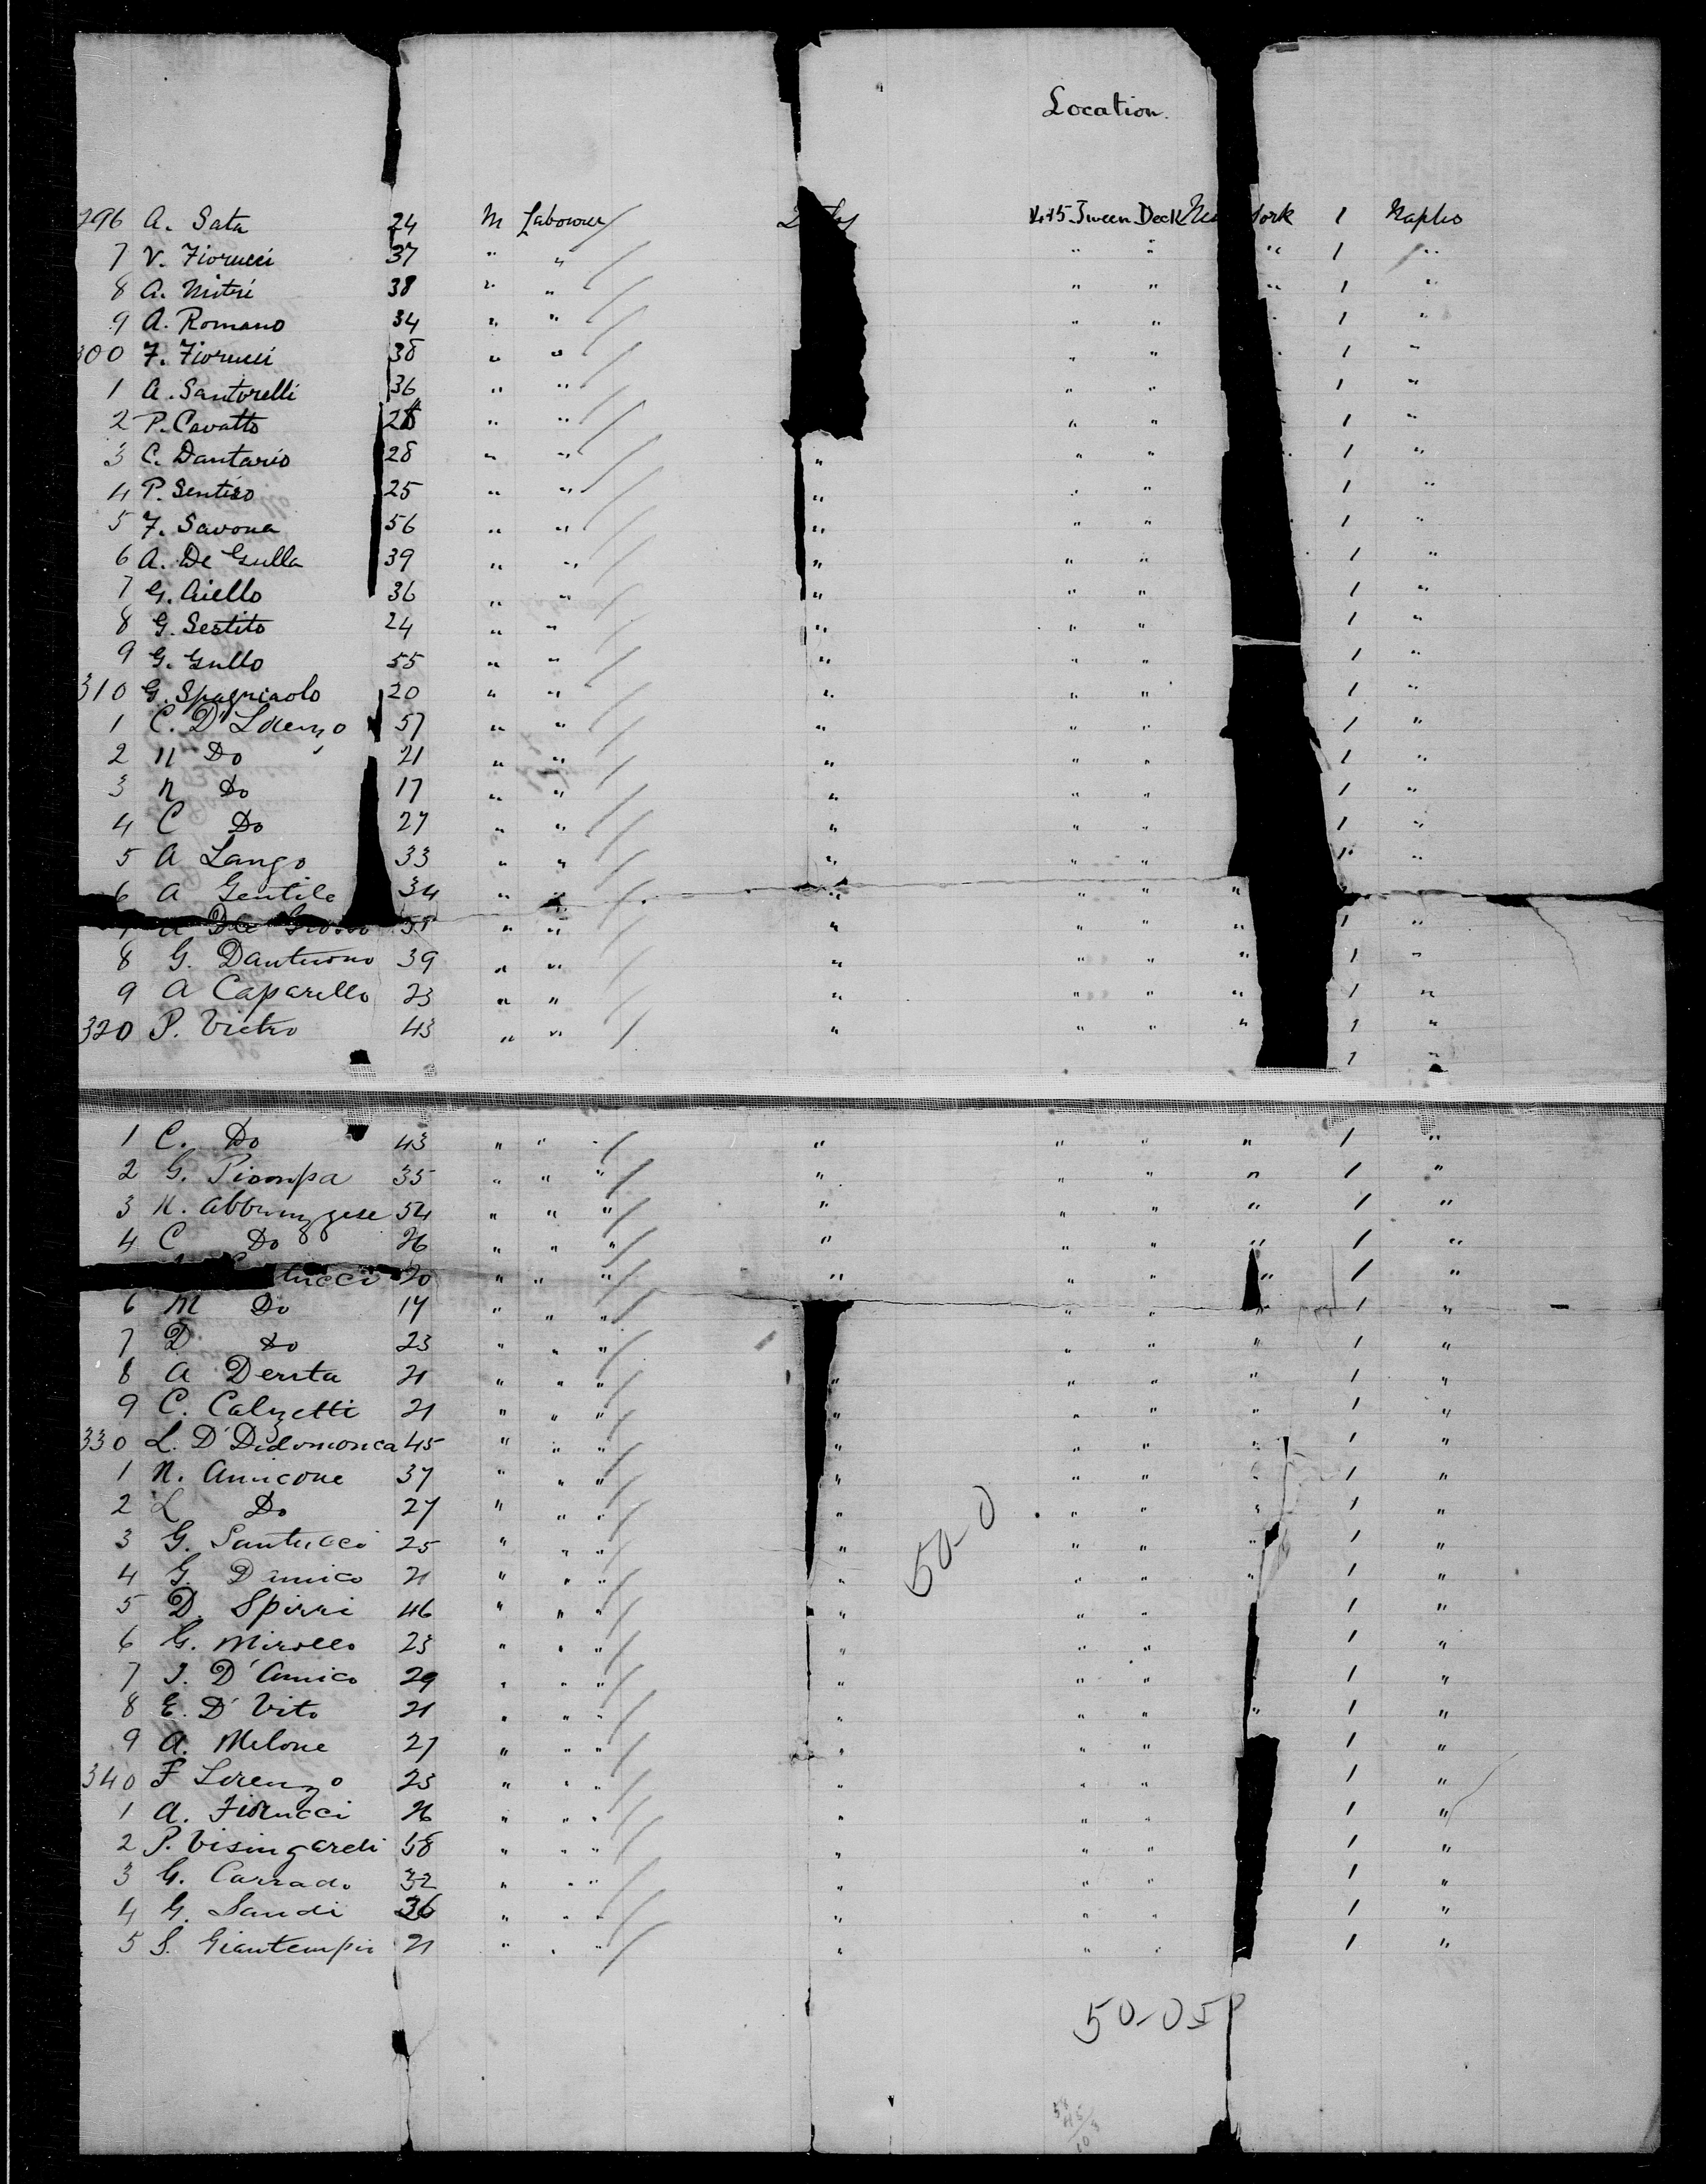 Location.
296 A. Sata 24 M Labourer 4+5 Tween Deck New York 1 Naples
7 V. Fiorucci 37 " " " " " 1 "
8 A. Mitri 38 " " " " " 1 "
9 A. Romano 34 " " " " 1 "
300 F. Fiorucci 38 " " " " 1 "
1 A. Santorelli 36 " " " " 1 "
2 P. Cavatto " " " " 1 "
3 C. Dantario 28 " " " " " 1 "
4 P. 25 " " " " " 1 "
5 F. Savona 56 " " " " " 1 "
6 A. De Gulla 39 " " " " " 1 "
7 G. Aiello 36 " " " " " 1 "
8 G. Sestito 24 " " " " " 1 "
9 G. Gullo 55 " " " " " 1 "
310 G. 20 " " " " " 1 "
1 C. D' Lorenzo 57 " " " " " 1 "
2 N Do 21 " " " " " 1 "
3 N Do 17 " " " " " 1 "
4 C Do 27 " " " " " 1 "
5 A Lango 33 " " " " " 1 "
6 A Gentile 34 " " " " " "
" " " " " " 1 "
8 G. Dantuono 39 " " " " " " 1 "
9 A Caparello 23 " " " " " " 1 "
320 P. Vietro 43 " " " " " " 1 "
1 "
1 C. Do 43 " " " " " " " 1 "
2 G. Piompa 35 " " " " " " " 1 "
3 N. Abbruzzese 54 " " " " " " " 1 "
4 C Do 26 " " " " " " " 1 "
tucci 20 " " " " " " " 1 "
6 M Do 17 " " " " " " 1 "
7 D Do 23 " " " " " " 1 "
8 A Derita 21 " " " " " " " 1 "
9 C. Calzetti 21 " " " " " " " 1 "
330 L. D' Didomonca 45 " " " " " " " 1 "
1 N. Amicone 37 " " " " " " " 1 "
2 L Do 27 " " " " " " " 1 "
3 G. Santucci 25 " " " " " " " 1 "
4 G. D'amico 21 " " " " " " " 1 "
50-0
5 D. Spirri 46 " " " " " " 1 "
6 G. Mirollo 23 " " " " " " 1 "
7 J. D'Amico 29 " " " " " " 1 "
8 E. D' Vito 21 " " " " " " " 1 "
9 A. Melone 27 " " " " " " 1 "
340 F Lorenzo 23 " " " " " " 1 "
1 A. Fiorucci 26 " " " " " " 1 "
2 P. Visingardi 58 " " " " " " 1 "
3 G. Carrado 32 " " " " " 1 "
4 G. Sandi 36 " " " " " " 1 "
5 S. Giantempio 21 " " " " " " 1 "
50-0